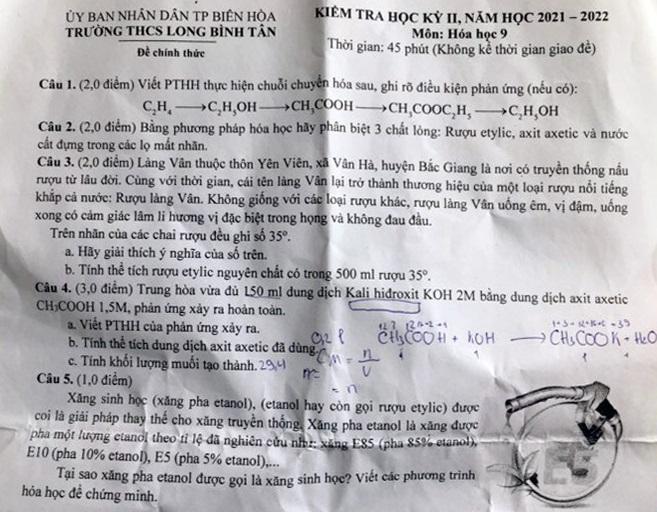 ỦY BAN NHÂN DÂN TP BIÊN HÒA
TRƯỜNG THCS LONG BÌNH TÂN
Đề chính thức
KIỂM TRA HỌC KỲ II, NĂM HỌC 2021 – 2022
Môn: Hóa học 9
Thời gian: 45 phút (Không kể thời gian giao đề)
Câu 1. (2,0 điểm) Viết PTHH thực hiện chuỗi chuyển hóa sau, ghi rõ điều kiện phản ứng (nếu có):
C₂H₄ ⟶ C₂H₅OH ⟶ CH₃COOH ⟶ CH₃COOC₂H₅ ⟶ C₂H₅OH
Câu 2. (2,0 điểm) Bằng phương pháp hóa học hãy phân biệt 3 chất lỏng: Rượu etylic, axit axetic và nước
cất đựng trong các lọ mất nhãn.
Câu 3. (2,0 điểm) Làng Vân thuộc thôn Yên Viên, xã Vân Hà, huyện Bắc Giang là nơi có truyền thống nấu
rượu từ lâu đời. Cùng với thời gian, cái tên làng Vân lại trở thành thương hiệu của một loại rượu nổi tiếng
khắp cả nước: Rượu làng Vân. Không giống với các loại rượu khác, rượu làng Vân uống êm, vị đậm, uống
xong có cảm giác lâm li hương vị đặc biệt trong họng và không đau đầu.
Trên nhãn của các chai rượu đều ghi số 35º.
a. Hãy giải thích ý nghĩa của số trên.
b. Tính thể tích rượu etylic nguyên chất có trong 500 ml rượu 35º.
Câu 4. (3,0 điểm) Trung hòa vừa đủ 150 ml dung dịch Kali hiđroxit KOH 2M bằng dung dịch axit axetic
CH₃COOH 1,5M, phản ứng xảy ra hoàn toàn.
a. Viết PTHH của phản ứng xảy ra.
b. Tính thể tích dung dịch axit axetic đã dùng. 0,2 l
c. Tính khối lượng muối tạo thành. 29,4
CM = n/V
m=
= n
CH₃COOH + KOH ⟶ CH₃COOK + H₂O
1 1 1
Câu 5. (1,0 điểm)
Xăng sinh học (xăng pha etanol), (etanol hay còn gọi rượu etylic) được
coi là giải pháp thay thế cho xăng truyền thống. Xăng pha etanol là xăng được
pha một lượng etanol theo tỉ lệ đã nghiên cứu như: xăng E85 (pha 85% etanol),
E10 (pha 10% etanol), E5 (pha 5% etanol),...
Tại sao xăng pha etanol được gọi là xăng sinh học? Viết các phương trình
hóa học để chứng minh.
E5